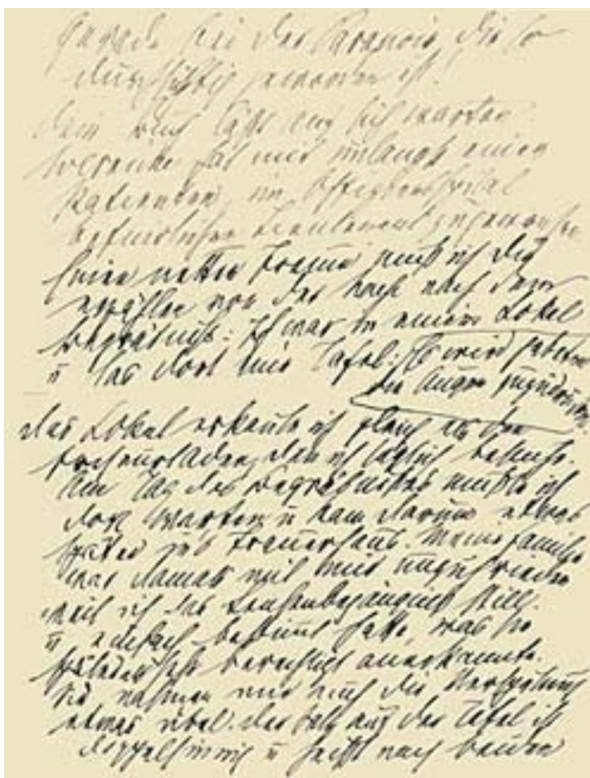 gerade bei der Paranoia, die so
durchsichtig geworden ist.
Dein Buch läßt auf sich warten.
Wernicke hat mir unlängst einen
Patienten, im Offiziersspital
befindlichen Lieutenant zugewiesen
Einen netten Traum muß ich Dir
erzählen von der Nacht nach dem
Begräbniß: Ich war in einem Lokal
u las dort eine Tafel: Es wird gebeten
die Augen zuzudrücken.
das Lokal erkannte ich gleich als den
Friseurladen, den ich täglich besuche.
Am Tag des Begräbnißes mußte ich
dort warten u kam darum etwas
später ins Trauerhaus. Meine Familie
war damals mit mir unzufrieden
weil ich das Leichenbegängniß still
u einfach bestimt hatte, was sie
später als sehr berechtigt anerkannte.
Sie nahmen mir auch die Verspätung
etwas übel. Der Satz auf der Tafel ist
doppelsinnig u heißt nach beiden